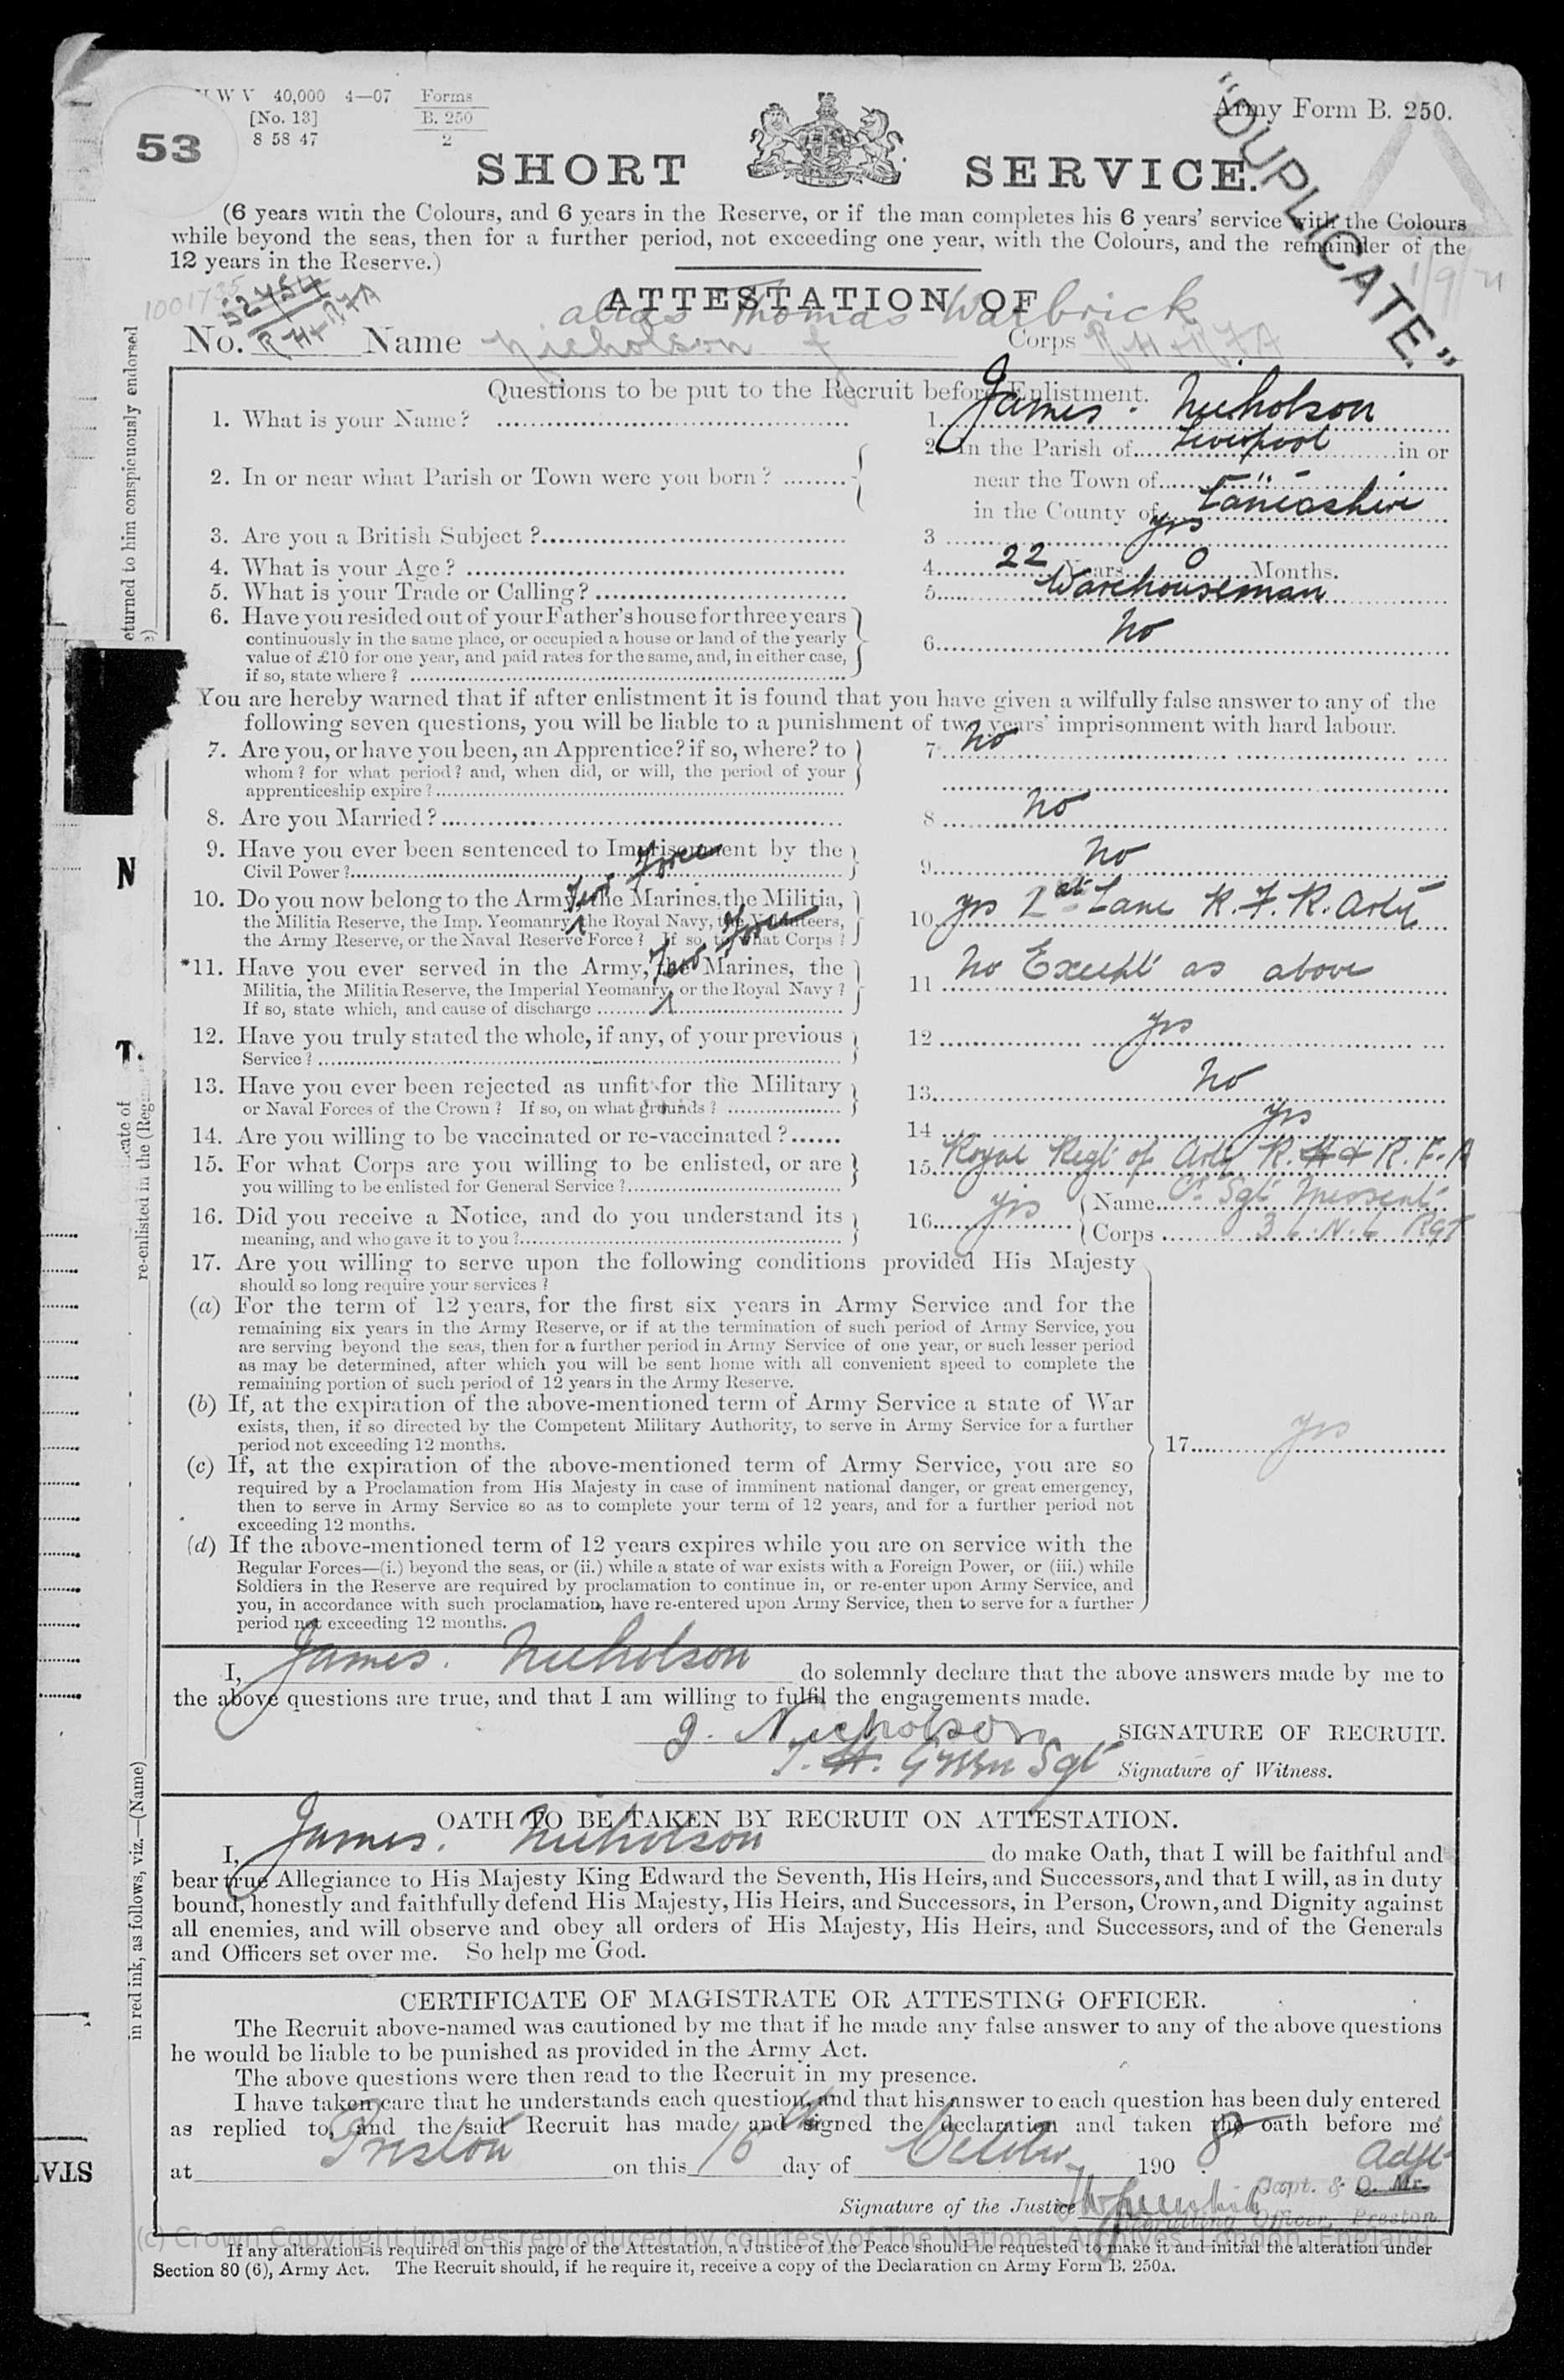 W V 40,000 4—07 Forms
[No. 13] B. 250
8 58 47 2
Army Form B. 250.
53
"DUPLICATE."
SHORT SERVICE.
(6 years with the Colours, and 6 years in the Reserve, or if the man completes his 6 years' service with the Colours
while beyond the seas, then for a further period, not exceeding one year, with the Colours, and the remainder of the
12 years in the Reserve.)
1/9/21
1001735
52454
ATTESTATION OF
alias Thomas Warbrick
No. RH+RFA Name Nicholson J Corps RH+RFA
Questions to be put to the Recruit before Enlistment.
1. What is your Name? 1. James. Nicholson
2. In or near what Parish or Town were you born? 2. In the Parish of Liverpool in or
near the Town of "
in the County of Lancashire
3. Are you a British Subject? 3 yes
4. What is your Age? 4. 22 Years 0 Months.
5. What is your Trade or Calling? 5. Warehouseman
6. Have you resided out of your Father's house for three years
continuously in the same place, or occupied a house or land of the yearly
value of £10 for one year, and paid rates for the same, and, in either case,
if so, state where? 6. No
You are hereby warned that if after enlistment it is found that you have given a wilfully false answer to any of the
following seven questions, you will be liable to a punishment of two years' imprisonment with hard labour.
7. Are you, or have you been, an Apprentice? if so, where? to 7. No
whom? for what period? and, when did, or will, the period of your
apprenticeship expire?
8. Are you Married? 8 No
9. Have you ever been sentenced to Imprisonment by the
Civil Power? 9. No
10. Do you now belong to the Army, the Marines, the Militia,
the Militia Reserve, the Imp. Yeomanry, the Royal Navy, the Volunteers,
the Army Reserve, or the Naval Reserve Force? If so, to what Corps?
Terr Force
10. yes 1st Lanc R.F.R. Arty
*11. Have you ever served in the Army, the Marines, the
Militia, the Militia Reserve, the Imperial Yeomanry, or the Royal Navy?
If so, state which, and cause of discharge
Terr Force
11 No Except as above
12. Have you truly stated the whole, if any, of your previous
Service? 12 yes
13. Have you ever been rejected as unfit for the Military
or Naval Forces of the Crown? If so, on what grounds? 13. No
14. Are you willing to be vaccinated or re-vaccinated? 14 yes
15. For what Corps are you willing to be enlisted, or are
you willing to be enlisted for General Service? 15. Royal Regt of Arty R.H & R.F.A
16. Did you receive a Notice, and do you understand its
meaning, and who gave it to you? 16. yes Name Sgt
Corps 3 L.N.L Rgt
17. Are you willing to serve upon the following conditions provided His Majesty
should so long require your services?
(a) For the term of 12 years, for the first six years in Army Service and for the
remaining six years in the Army Reserve, or if at the termination of such period of Army Service, you
are serving beyond the seas, then for a further period in Army Service of one year, or such lesser period
as may be determined, after which you will be sent home with all convenient speed to complete the
remaining portion of such period of 12 years in the Army Reserve.
(b) If, at the expiration of the above-mentioned term of Army Service a state of War
exists, then, if so directed by the Competent Military Authority, to serve in Army Service for a further
period not exceeding 12 months.
17. yes
(c) If, at the expiration of the above-mentioned term of Army Service, you are so
required by a Proclamation from His Majesty in case of imminent national danger, or great emergency,
then to serve in Army Service so as to complete your term of 12 years, and for a further period not
exceeding 12 months.
(d) If the above-mentioned term of 12 years expires while you are on service with the
Regular Forces—(i.) beyond the seas, or (ii.) while a state of war exists with a Foreign Power, or (iii.) while
Soldiers in the Reserve are required by proclamation to continue in, or re-enter upon Army Service, and
you, in accordance with such proclamation, have re-entered upon Army Service, then to serve for a further
period not exceeding 12 months.
I, James. Nicholson do solemnly declare that the above answers made by me to
the above questions are true, and that I am willing to fulfil the engagements made.
J. Nicholson SIGNATURE OF RECRUIT.
T. H. Green Sgt Signature of Witness.
OATH TO BE TAKEN BY RECRUIT ON ATTESTATION.
I, James. Nicholson do make Oath, that I will be faithful and
bear true Allegiance to His Majesty King Edward the Seventh, His Heirs, and Successors, and that I will, as in duty
bound, honestly and faithfully defend His Majesty, His Heirs, and Successors, in Person, Crown, and Dignity against
all enemies, and will observe and obey all orders of His Majesty, His Heirs, and Successors, and of the Generals
and Officers set over me. So help me God.
CERTIFICATE OF MAGISTRATE OR ATTESTING OFFICER.
The Recruit above-named was cautioned by me that if he made any false answer to any of the above questions
he would be liable to be punished as provided in the Army Act.
The above questions were then read to the Recruit in my presence.
I have taken care that he understands each question, and that his answer to each question has been duly entered
as replied to, and the said Recruit has made and signed the declaration and taken the oath before me
at Preston on this 16th day of October 1908
Adjt
Signature of the Justice Capt. & Q. Mr.
Recruiting Officer, Preston
(c) Crown Copyright Images reproduced by courtesy of The National Archives, London, England
If any alteration is required on this page of the Attestation, a Justice of the Peace should be requested to make it and initial the alteration under
Section 80 (6), Army Act. The Recruit should, if he require it, receive a copy of the Declaration on Army Form B. 250A.
eturned to him conspicuously endorsed
N
T.
icate of
re-enlisted in the (Regi
in red ink, as follows, viz.—(Name)
STA